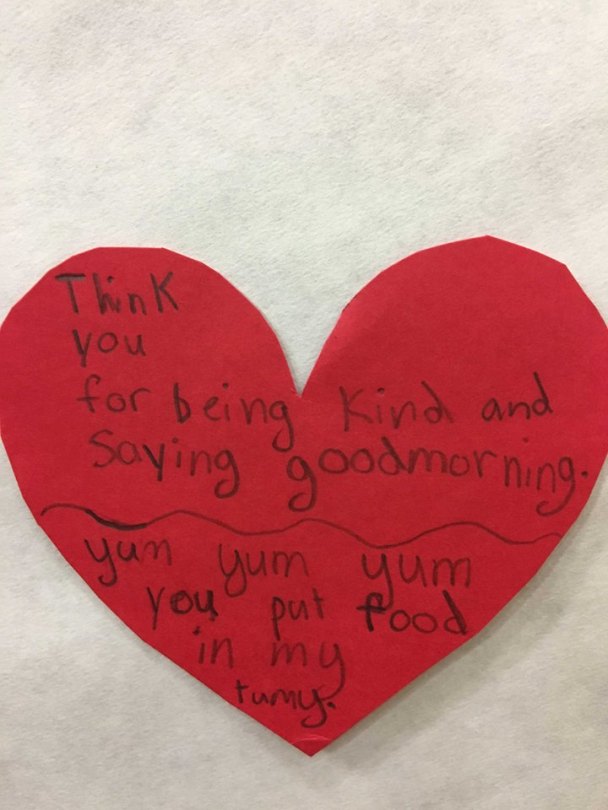 Think
you
for being kind and
Saying goodmorning.
yum yum yum
you put food
in my
tumy.